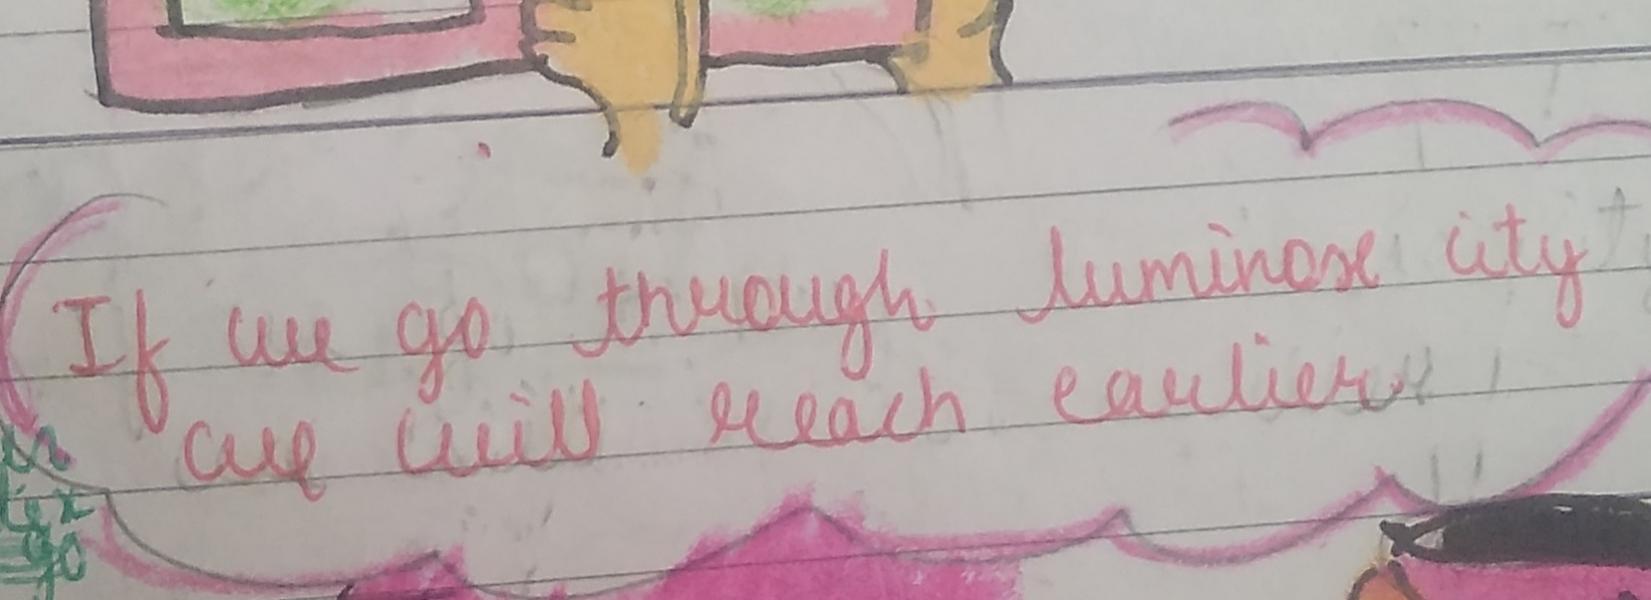 If we go through luminose city
we will reach earlier
go